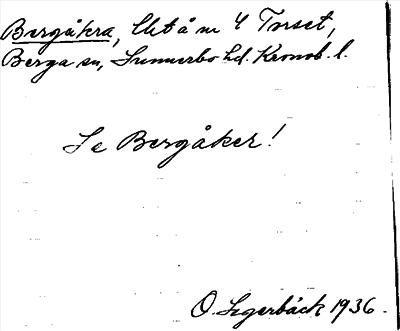 Bergåkra, Ut å m 4 Torset,
Berga sn, Sunnerbo hd. Kronob. l.
Se Bergåker!
O. Segerbäck 1936.